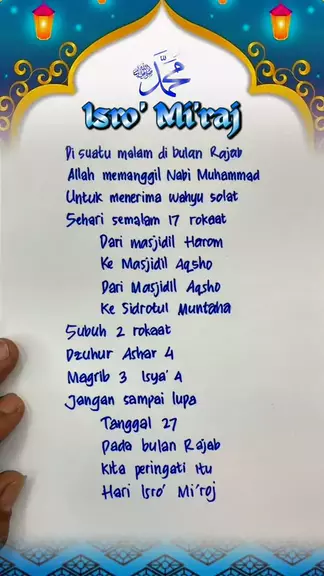 محمد ﷺ
Isro' Mi'raj
Di suatu malam di bulan Rajab
Allah memanggil Nabi Muhammad
Untuk menerima wahyu solat
Sehari semalam 17 rokaat
Dari masjidil Harom
Ke Masjidil Aqsho
Dari Masjidil Aqsho
Ke Sidrotul Muntaha
Subuh 2 rokaat
Dzuhur Ashar 4
Magrib 3 Isya' 4
Jangan sampai lupa
Tanggal 27
Pada bulan Rajab
Kita peringati itu
Hari Isro' Mi'roj